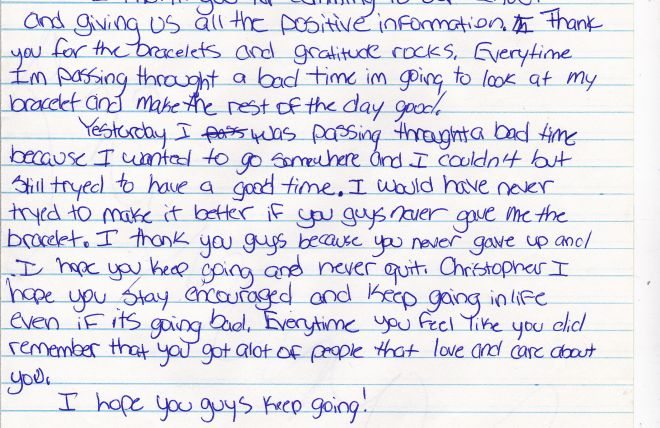 and giving us all the positive information. Thank
you for the bracelets and gratitude rocks. Everytime
I'm passing throught a bad time im going to look at my
bracelet and make the rest of the day good.
Yesterday I pass was passing throught a bad time
because I wanted to go somewhere and I couldn't but
still tryed to have a good time. I would have never
tryed to make it better if you guys never gave me the
bracelet. I thank you guys because you never gave up and
. I hope you keep going and never quit. Christopher I
hope you stay encouraged and keep going in life
even if its going bad. Everytime you feel like you did
remember that you got alot of people that love and care about
you.
I hope you guys keep going!